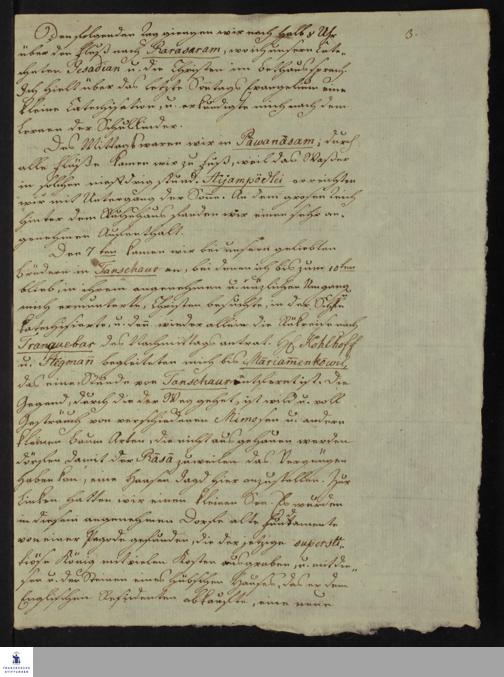 3.
Den folgenden Tag giengen wir nach halb 8 Uhr
über den Fluß nach Rarasaram, wo ich unsern Cate-
cheten Jesadian u. die Christen im bethaus sprach.
Ich hielt über das letzte Sontags Evangelium eine
kleine Catechisation, u. erkundigte mich nach dem
lernen der Schulkinder.
Des Mittags waren wir in Pawanasam; durch
alle Flüße kamen wir zu fuß, weil das Waßer
in solchen niedrig stund. Aijampöttei erreichten
wir mit Untergang der Sonne. An dem großen teich
hinter dem Ruhehaus fanden wir einen sehr an-
genehmen Aufenthalt.
Den 7ten kamen wir bei unsern geliebten
brüdern in Tanschaur an, bei denen ich bis zum 10ten
blieb, in ihrem angenehmen u. nüzlichen Umgang
mich ermunterte, Christen besuchte, in der Schule
katechisierte, u. den wieder allein die Rükreise nach
Tranquebar des Nachmittags antrat. H. Kohlhoff
u. Hegman begleiteten mich bis Mariamenkowil,
das eine Stunde von Tanschaur entfernt ist. Die
Gegend, durch die der Weg gehet, ist wild u. voll
Gesträuch von verschiedenen Mimosen u. andern
kleinen baum Arten, die nicht ausgehauen werden
dörfen damit der Rasa zuweilen das Vergnügen
haben kan, eine Haasen Jagd hier anzustellen. Zur
linken hatten wir einen kleinen See. Es wurden
in diesem angenehmen Dorfe alte Fundamente
von einer Pagode gefunden, die der jetzige supersti-
tiöse König mit vielen Kosten ausgraben, u. mit die-
sen u. den Steinen eines hübschen Hauses, das er dem
Englischen Residenten abkaufte, eine neue
FRANCKESCHE
STIFTUNGEN